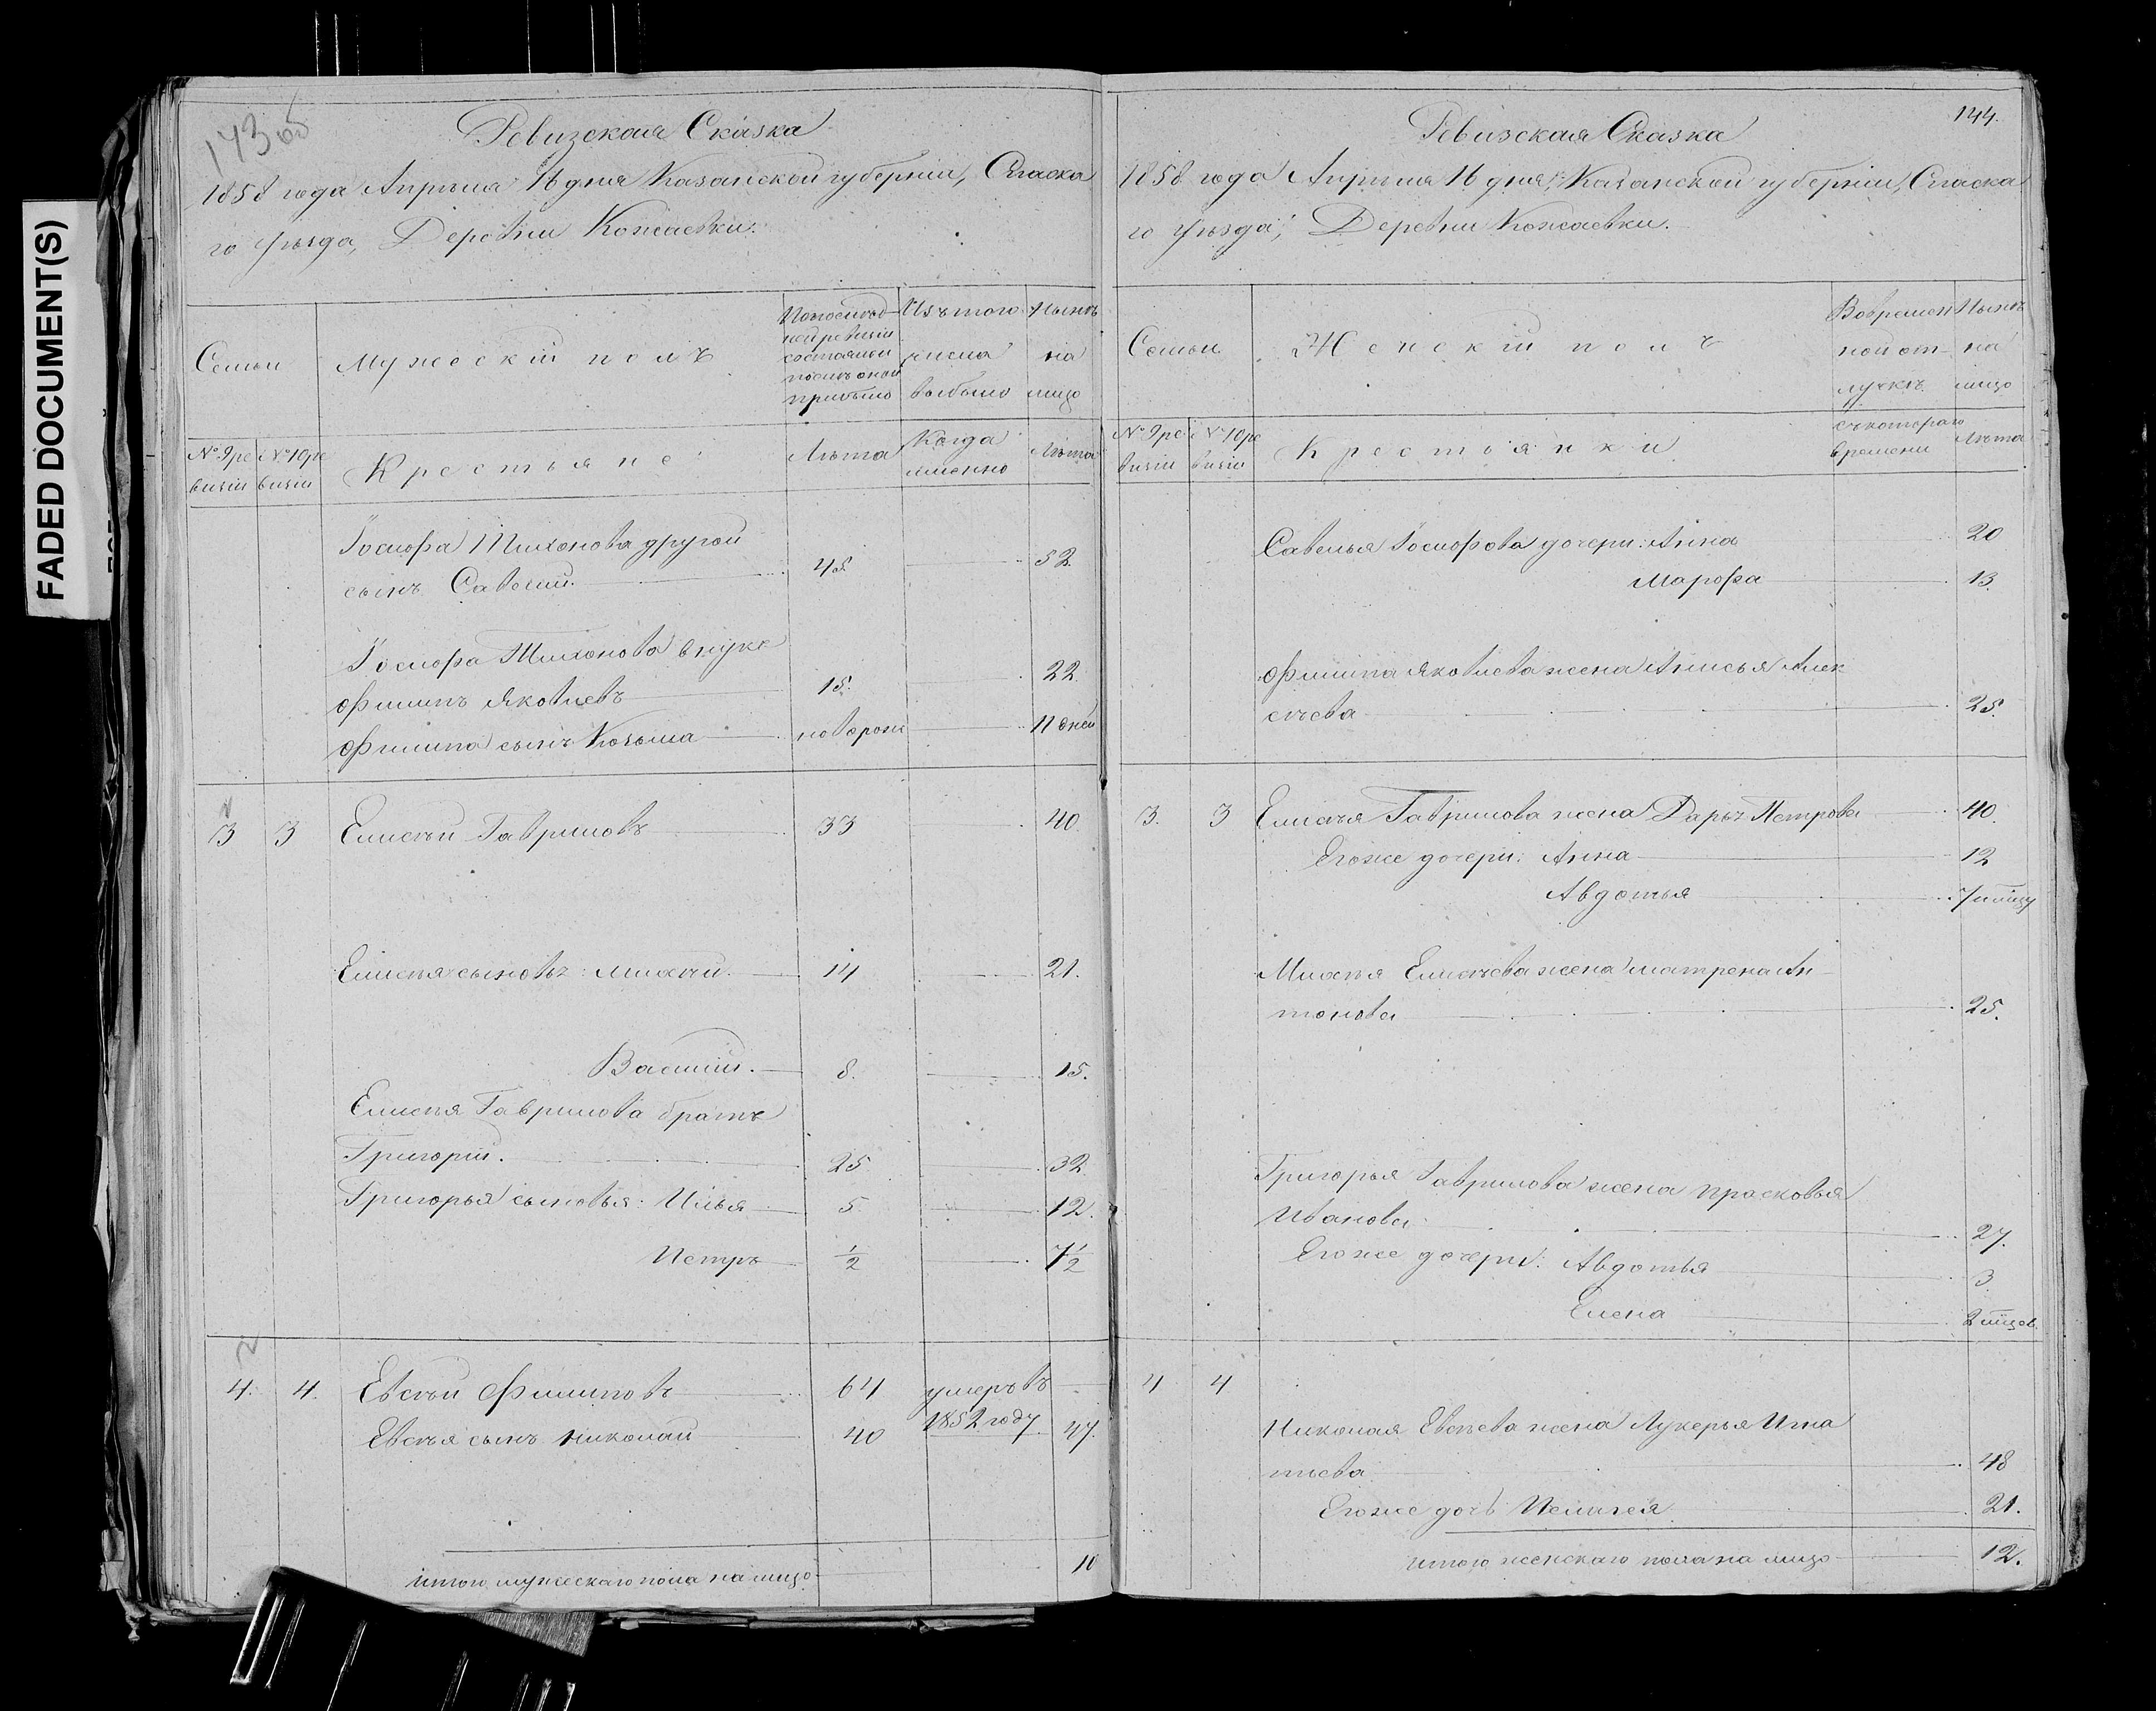 FADED DOCUMENT(S)
143 об
Ревизская Сказка
1858 года Апрѣля 16 дня Казанской губерніи, Спаска
го уѣзда, Деревни Кожаевки.
Семьи
Мужеской полъ
По послѣд
ней ревизіи
состояли
и послѣ оной
прибыло
Изъ того
числа
выбыло
Нынѣ
на
лицо
№ 9 ре
визіи
№ 10 ре
визіи
Крестьяне
Лѣта
Когда
именно
Лѣта
Іосифа Тихонова другой
сынъ Савелий. 45. 52.
Іосифа Тихонова внукъ
Филипъ Яковлевъ 15. 22.
Филипа сынъ Козьма новорож 11 дней
3 3 Елисѣй Гавриловъ 33 40
Елисѣя сыновья: Михѣй. 14 21.
Василий. 8. 15.
Елисѣя Гаврилова братъ
Григорий. 25 32.
Григорья сыновья: Илья 5 12.
Петръ 1/2 7 1/2
4. 4. Евсѣй Филиповъ 64 умеръ въ
1852 году
Евсѣя сынъ Николай 40 47.
итого мужескаго пола на лицо 10
144.
Ревизская Сказка
1858 года Апрѣля 16 дня, Казанской губерніи, Спаска
го уѣзда, Деревни Кожаевки.
Семьи
Женский полъ
Во времен
ной от-
лучкѣ
Нынѣ
на
лицо
№ 9 ре
визіи
№ 10 ре
визіи
Крестьянки
съ котораго
времени
Лѣта
Савелья Іосифова дочери: Анна 20
Марфа 13.
Филипа Яковлева жена Анисья Алек
сѣева 25.
3. 3 Елисѣя Гаврилова жена Дарья Петрова 40.
Его же дочери: Анна 12
Авдотья 7
Михѣя Елисѣева жена Матрена Ан
тонова 25.
Григорья Гаврилова жена Прасковья
Иванова 27.
Его же дочери: Авдотья 3
Елена 2 мѣсцов.
4 4
Николая Евсѣева жена Лукерья Игна
тьева 48
Его же дочь Пелагея 21.
итого женскаго пола на лицо 12.